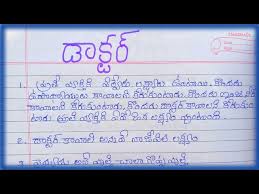 డాక్టర్
1. ప్రతి వ్యక్తికి వేర్వేరు లక్ష్యాలు ఉంటాయి. కొందరు
ఉపాధ్యాయులు కావాలని కోరుకుంటారు, కొందరు
కావాలని కోరుకుంటారు, కొందరు డాక్టర్ కావాలని కోరుకుం
టారు. ప్రతి వ్యక్తికి ఏదో ఒక లక్ష్యం వుంటుంది.
2. డాక్టర్ కావాలి అనేది నా జీవిత లక్ష్యం
3. వైద్యుడు అనే వృత్తి చాలా గొప్ప వృత్తి